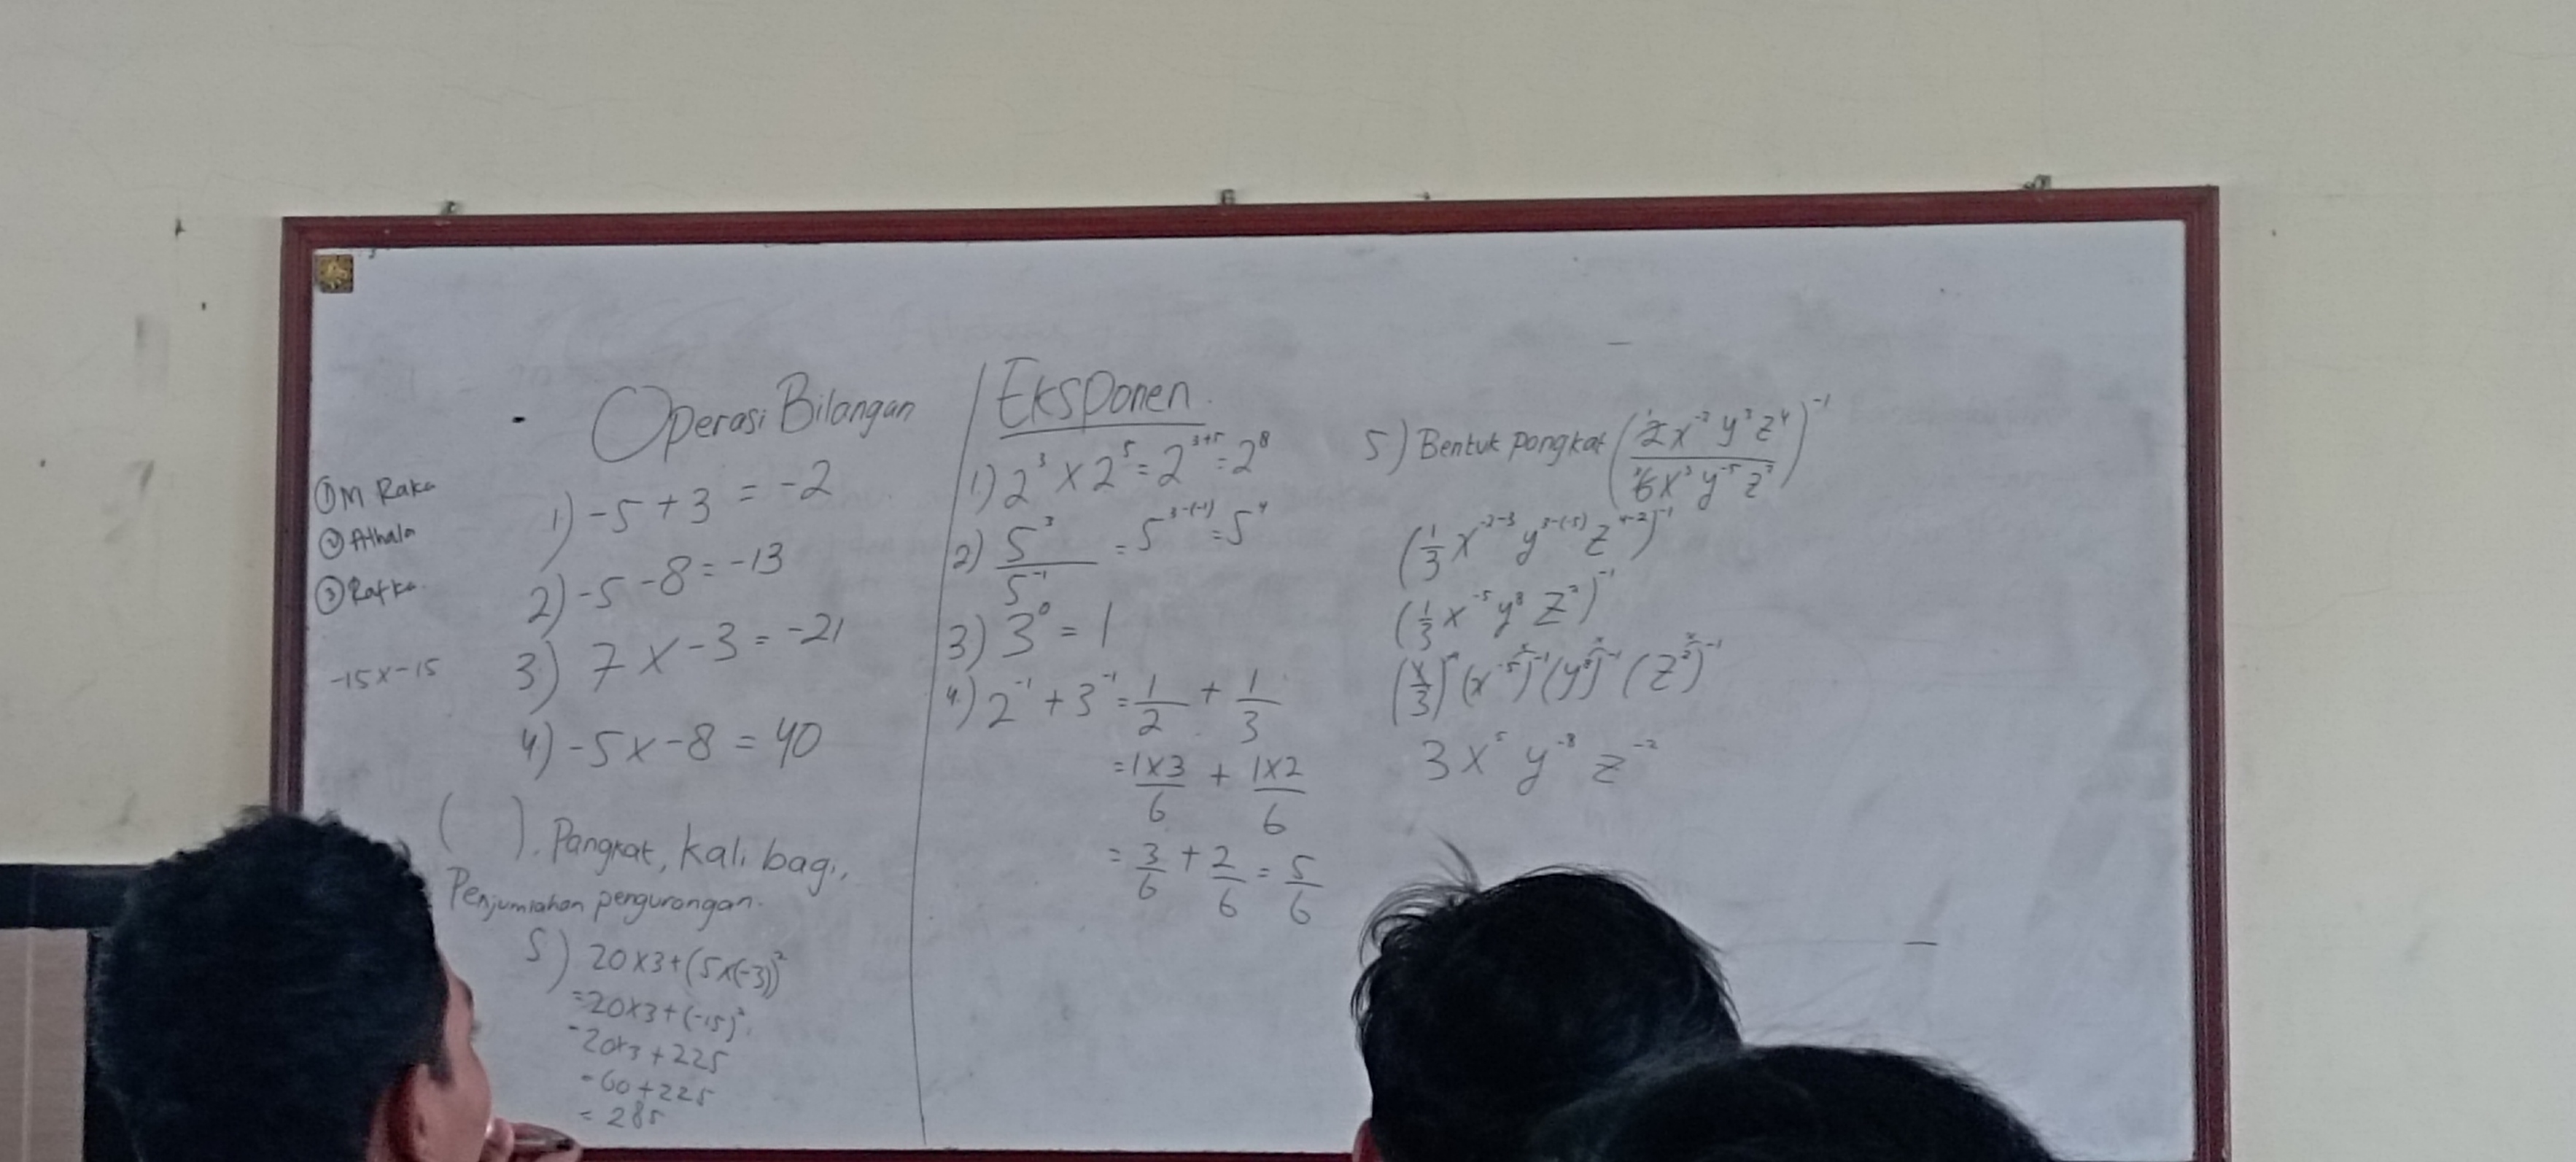 ① M Raka
② Athala
③ Rafka
-15x-15
Operasi Bilangan
1) -5 + 3 = -2
2) -5 -8 = -13
3) 7 x -3 = -21
4) -5 x -8 = 40
( ). Pangkat, kali bagi,
Penjumlahan pengurangan.
5) 20 x 3 + (5x(-3))²
= 20x3 + (-15)²
- 20x3 + 225
- 60 + 225
= 285
Eksponen
1) 2³ x 2⁵ = 2³⁺⁵ = 2⁸
2) 5³/5⁻¹ = 5³⁻⁽⁻¹⁾ = 5⁴
3) 3⁰ = 1
4) 2⁻¹ + 3⁻¹ = 1/2 + 1/3
= 1x3/6 + 1x2/6
= 3/6 + 2/6 = 5/6
5) Bentuk pangkat (2x⁻² y³ z⁴ / 6x³ y⁻⁵ z²)⁻¹
(1/3 x⁻²⁻³ y³⁻⁽⁻⁵⁾ z⁴⁻²)⁻¹
(1/3 x⁻⁵ y⁸ z²)⁻¹
(1/3)⁻¹ (x⁻⁵)⁻¹ (y⁸)⁻¹ (z²)⁻¹
3 x⁵ y⁻⁸ z⁻²